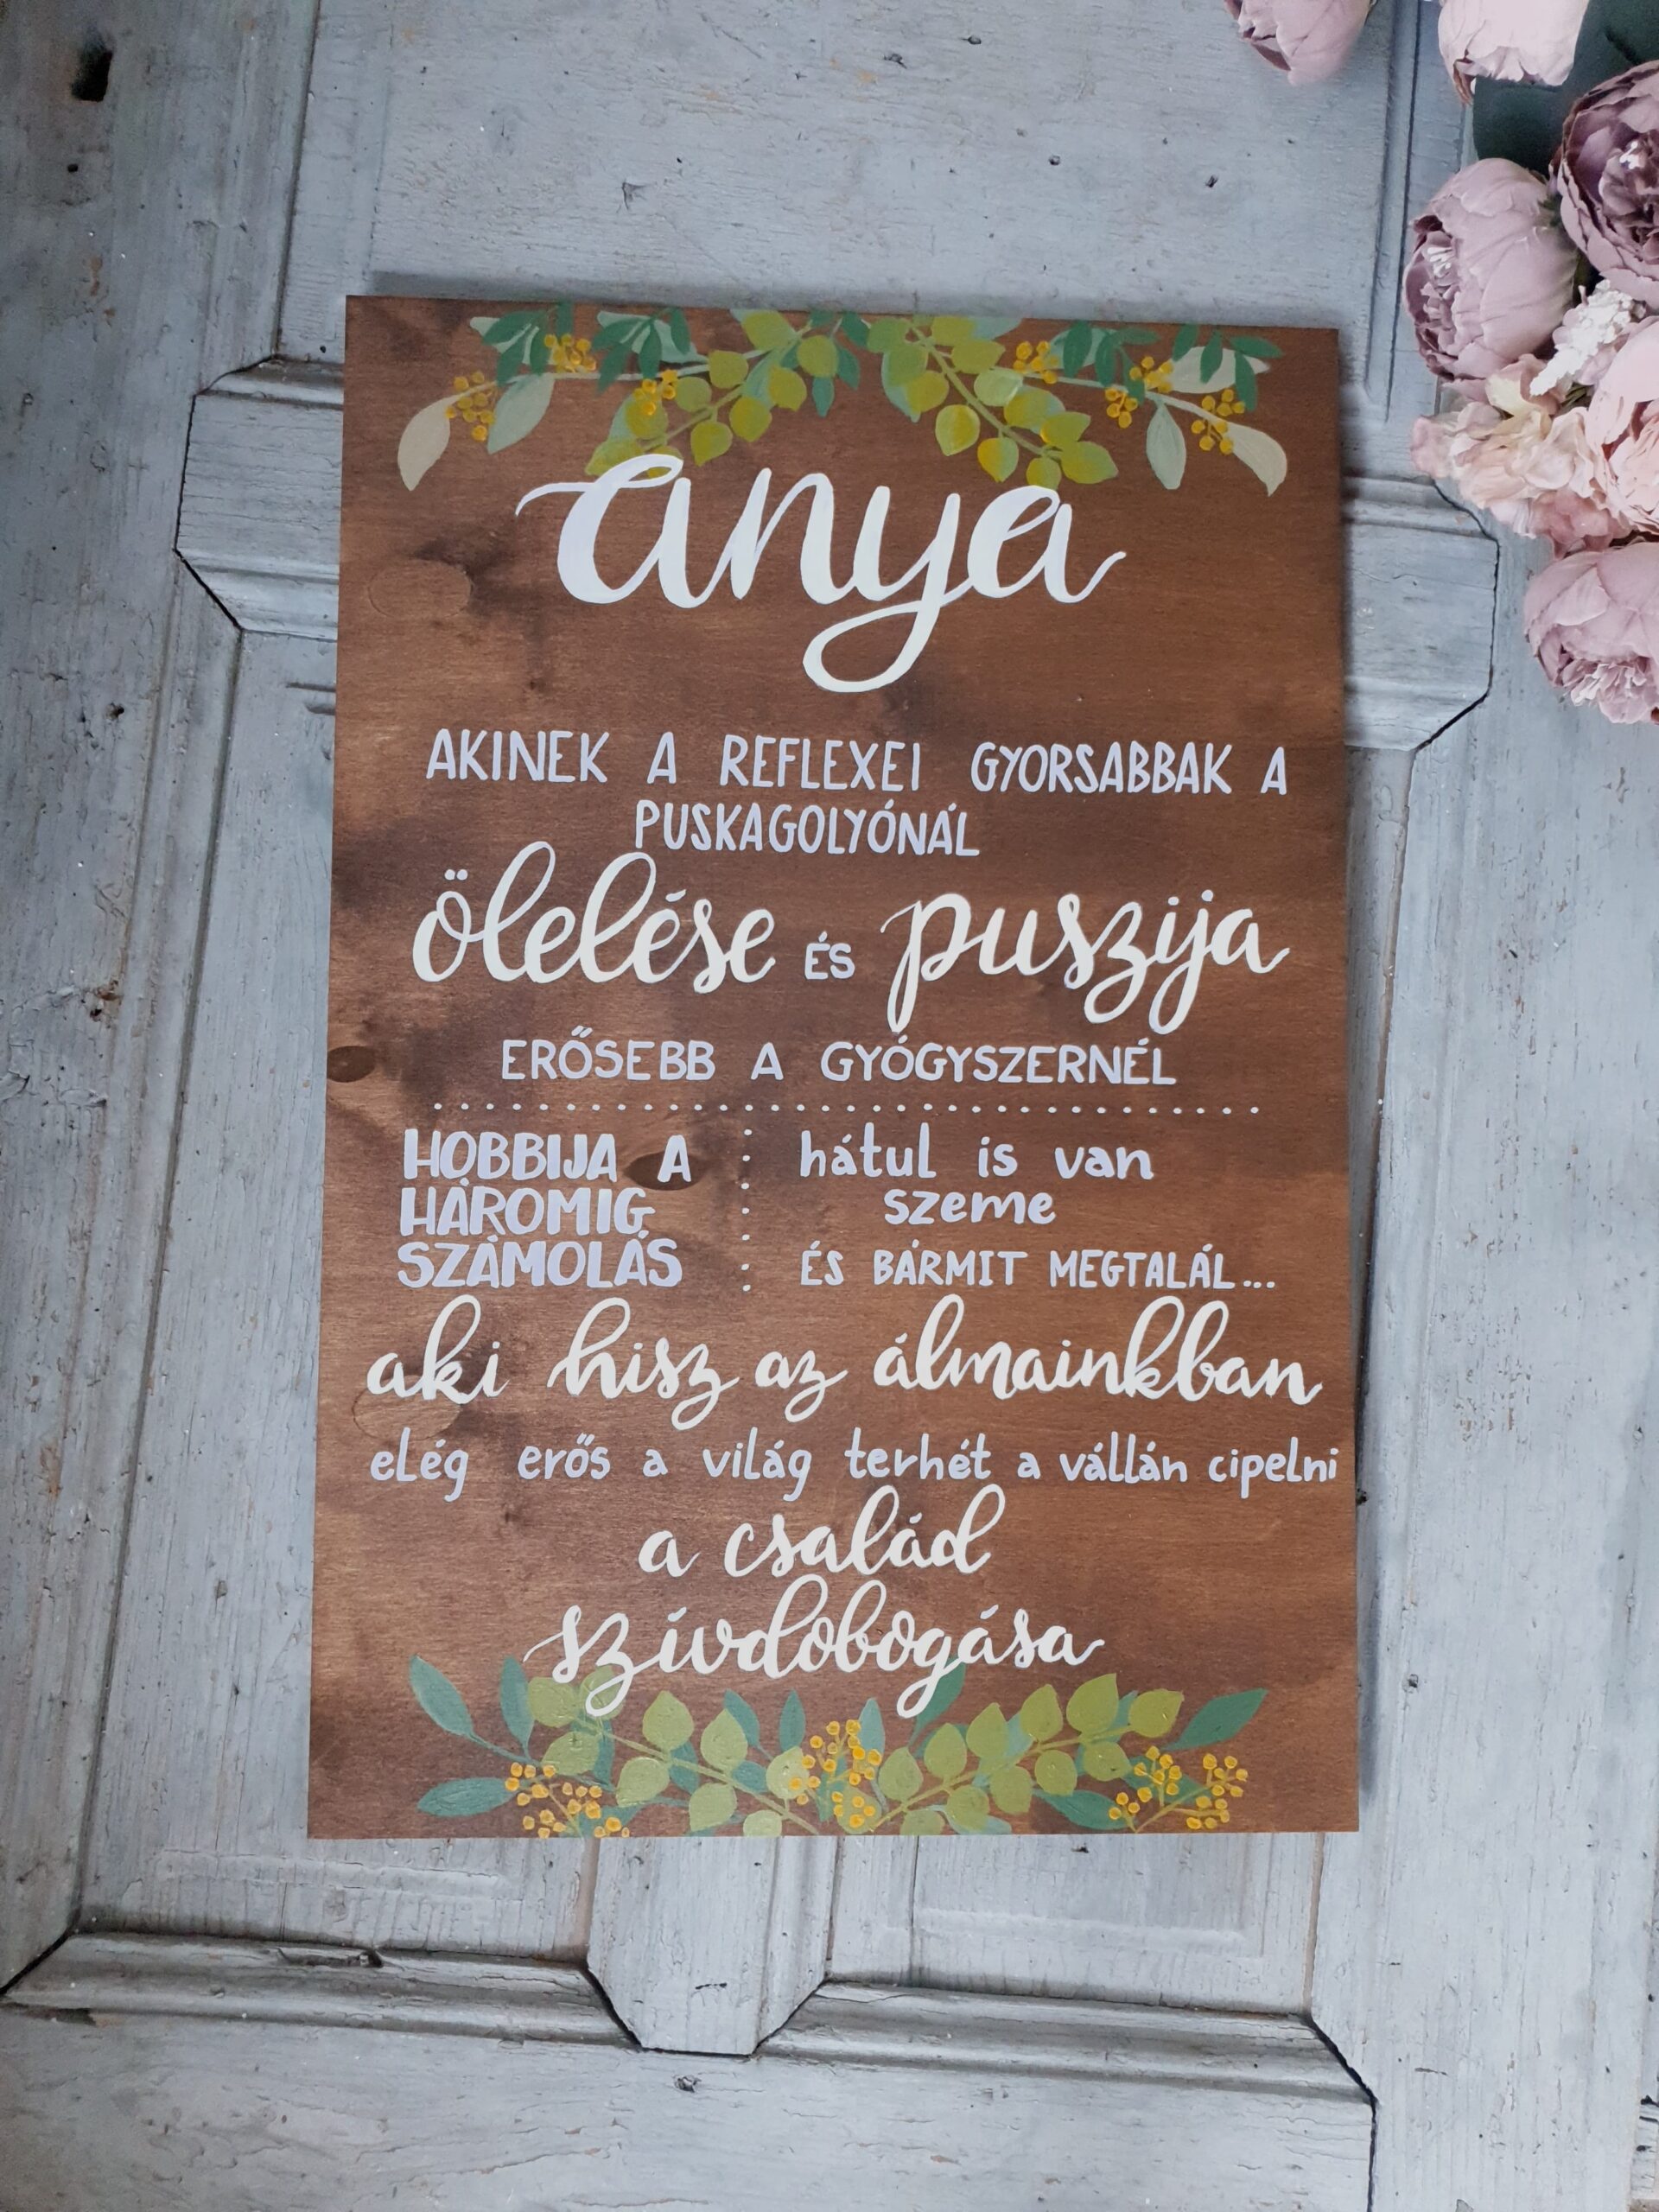 anya
AKINEK A REFLEXEI GYORSABBAK A
PUSKAGOLYÓNÁL
ölelése ÉS puszija
ERŐSEBB A GYÓGYSZERNÉL
HOBBIJA A
HÁROMIG
SZÁMOLÁS
hátul is van
szeme
ÉS BÁRMIT MEGTALÁL...
aki hisz az álmainkban
elég erős a világ terhét a vállán cipelni
a család
szívdobogása